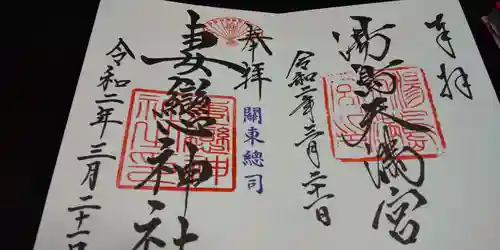 奉拝
湯島天満宮
令和二年三月二十一日
奉拝
關東總司
妻戀神社
令和二年三月二十一日